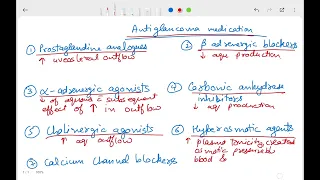 Antiglaucoma medication
① Prostaglandine analogues
↑ uveoscleral outflow
② β adrenergic blockers
↓ aqu production
③ α-adrenergic agonists
↓ of aqueous & subsequent
effect of ↑ in outflow
④ Carbonic anhydrase
inhibitors
↓ aqu production
⑤ Cholinergic agonists
↑ aq outflow
⑥ Hyperosmotic agents
↑ plasma tonicity, created
osmotic pressure b/w
blood &
⑦ Calcium channel blockers